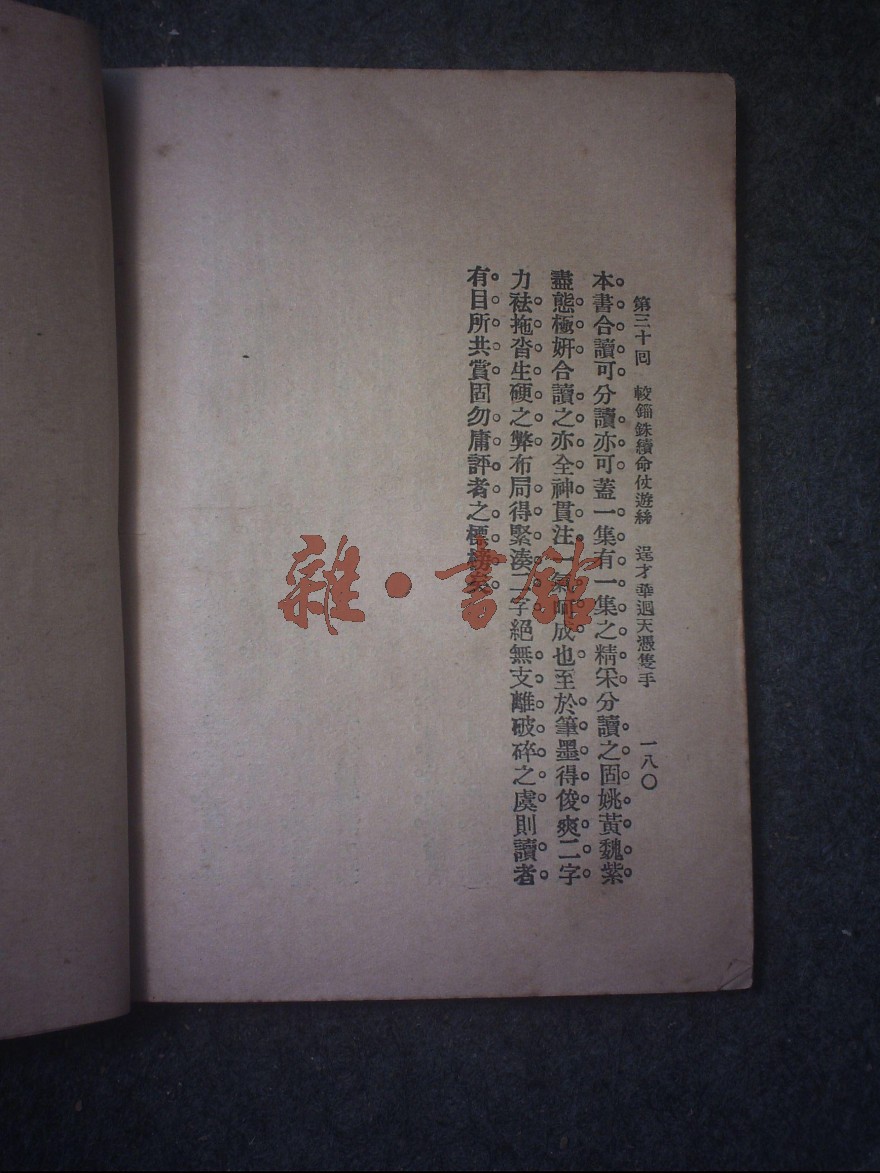 第三十回 較錙銖續命仗遊絲 逞才華迴天憑隻手 一八〇
本書合讀可分讀亦可蓋一集有一集之精采分讀之固姚黃魏紫
盡態極妍合讀之亦全神貫注一氣呵成也至於筆墨得俊爽二字
力祛拖沓生硬之弊布局得緊湊二字絕無支離破碎之虞則讀者
有目所共賞固勿庸評者之標榜矣
雜·書館